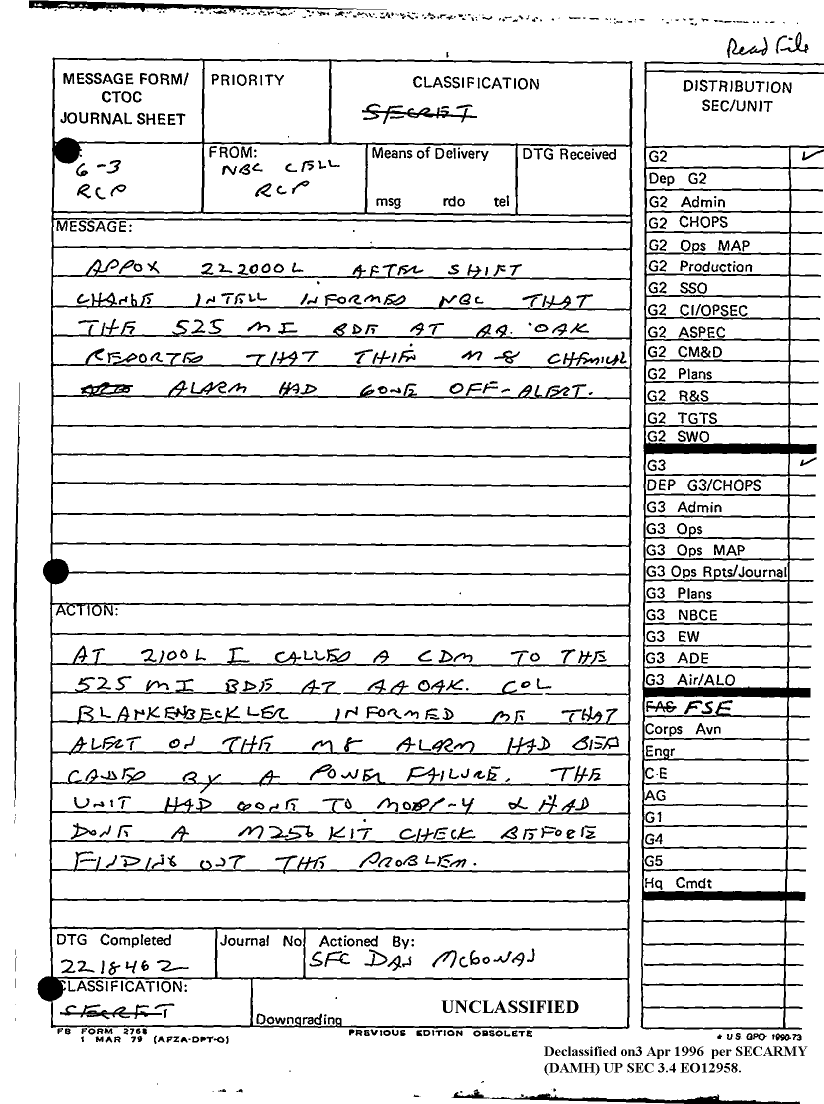 Read File
MESSAGE FORM/
CTOC
JOURNAL SHEET
PRIORITY
CLASSIFICATION
SECRET
DISTRIBUTION
SEC/UNIT
G-3
RCP
FROM:
NBC CELL
RCP
Means of Delivery
msg rdo tel
DTG Received
MESSAGE:
APPOX 222000L AFTER SHIFT
CHANGE INTELL INFORMED NBC THAT
THE 525 MI BDE AT AA. OAK
REPORTED THAT THIER M-8 CHEMICAL
ALARM HAD GONE OFF-ALERT.
ACTION:
AT 2100L I CALLED A CDM TO THE
525 MI BDE AT AA OAK. COL
BLANKENBECKLER INFORMED ME THAT
ALERT ON THE M8 ALARM HAD BEEN
CAUSED BY A POWER FAILURE. THE
UNIT HAD GONE TO MOPP-4 & HAD
DONE A M256 KIT CHECK BEFORE
FINDING OUT THE PROBLEM.
DTG Completed
221846Z
Journal No
Actioned By:
SFC DAN
CLASSIFICATION:
SECRET
Downgrading
UNCLASSIFIED
FB FORM 2768
1 MAR 79 (AFZA-DPT-O)
PREVIOUS EDITION OBSOLETE
G2 ✓
Dep G2
G2 Admin
G2 CHOPS
G2 Ops MAP
G2 Production
G2 SSO
G2 CI/OPSEC
G2 ASPEC
G2 CM&D
G2 Plans
G2 R&S
G2 TGTS
G2 SWO
G3 ✓
DEP G3/CHOPS
G3 Admin
G3 Ops
G3 Ops MAP
G3 Ops Rpts/Journal
G3 Plans
G3 NBCE
G3 EW
G3 ADE
G3 Air/ALO
FAS FSE
Corps Avn
Engr
C-E
AG
G1
G4
G5
Hq Cmdt
★ US GPO 1990-73
Declassified on3 Apr 1996 per SECARMY
(DAMH) UP SEC 3.4 EO12958.